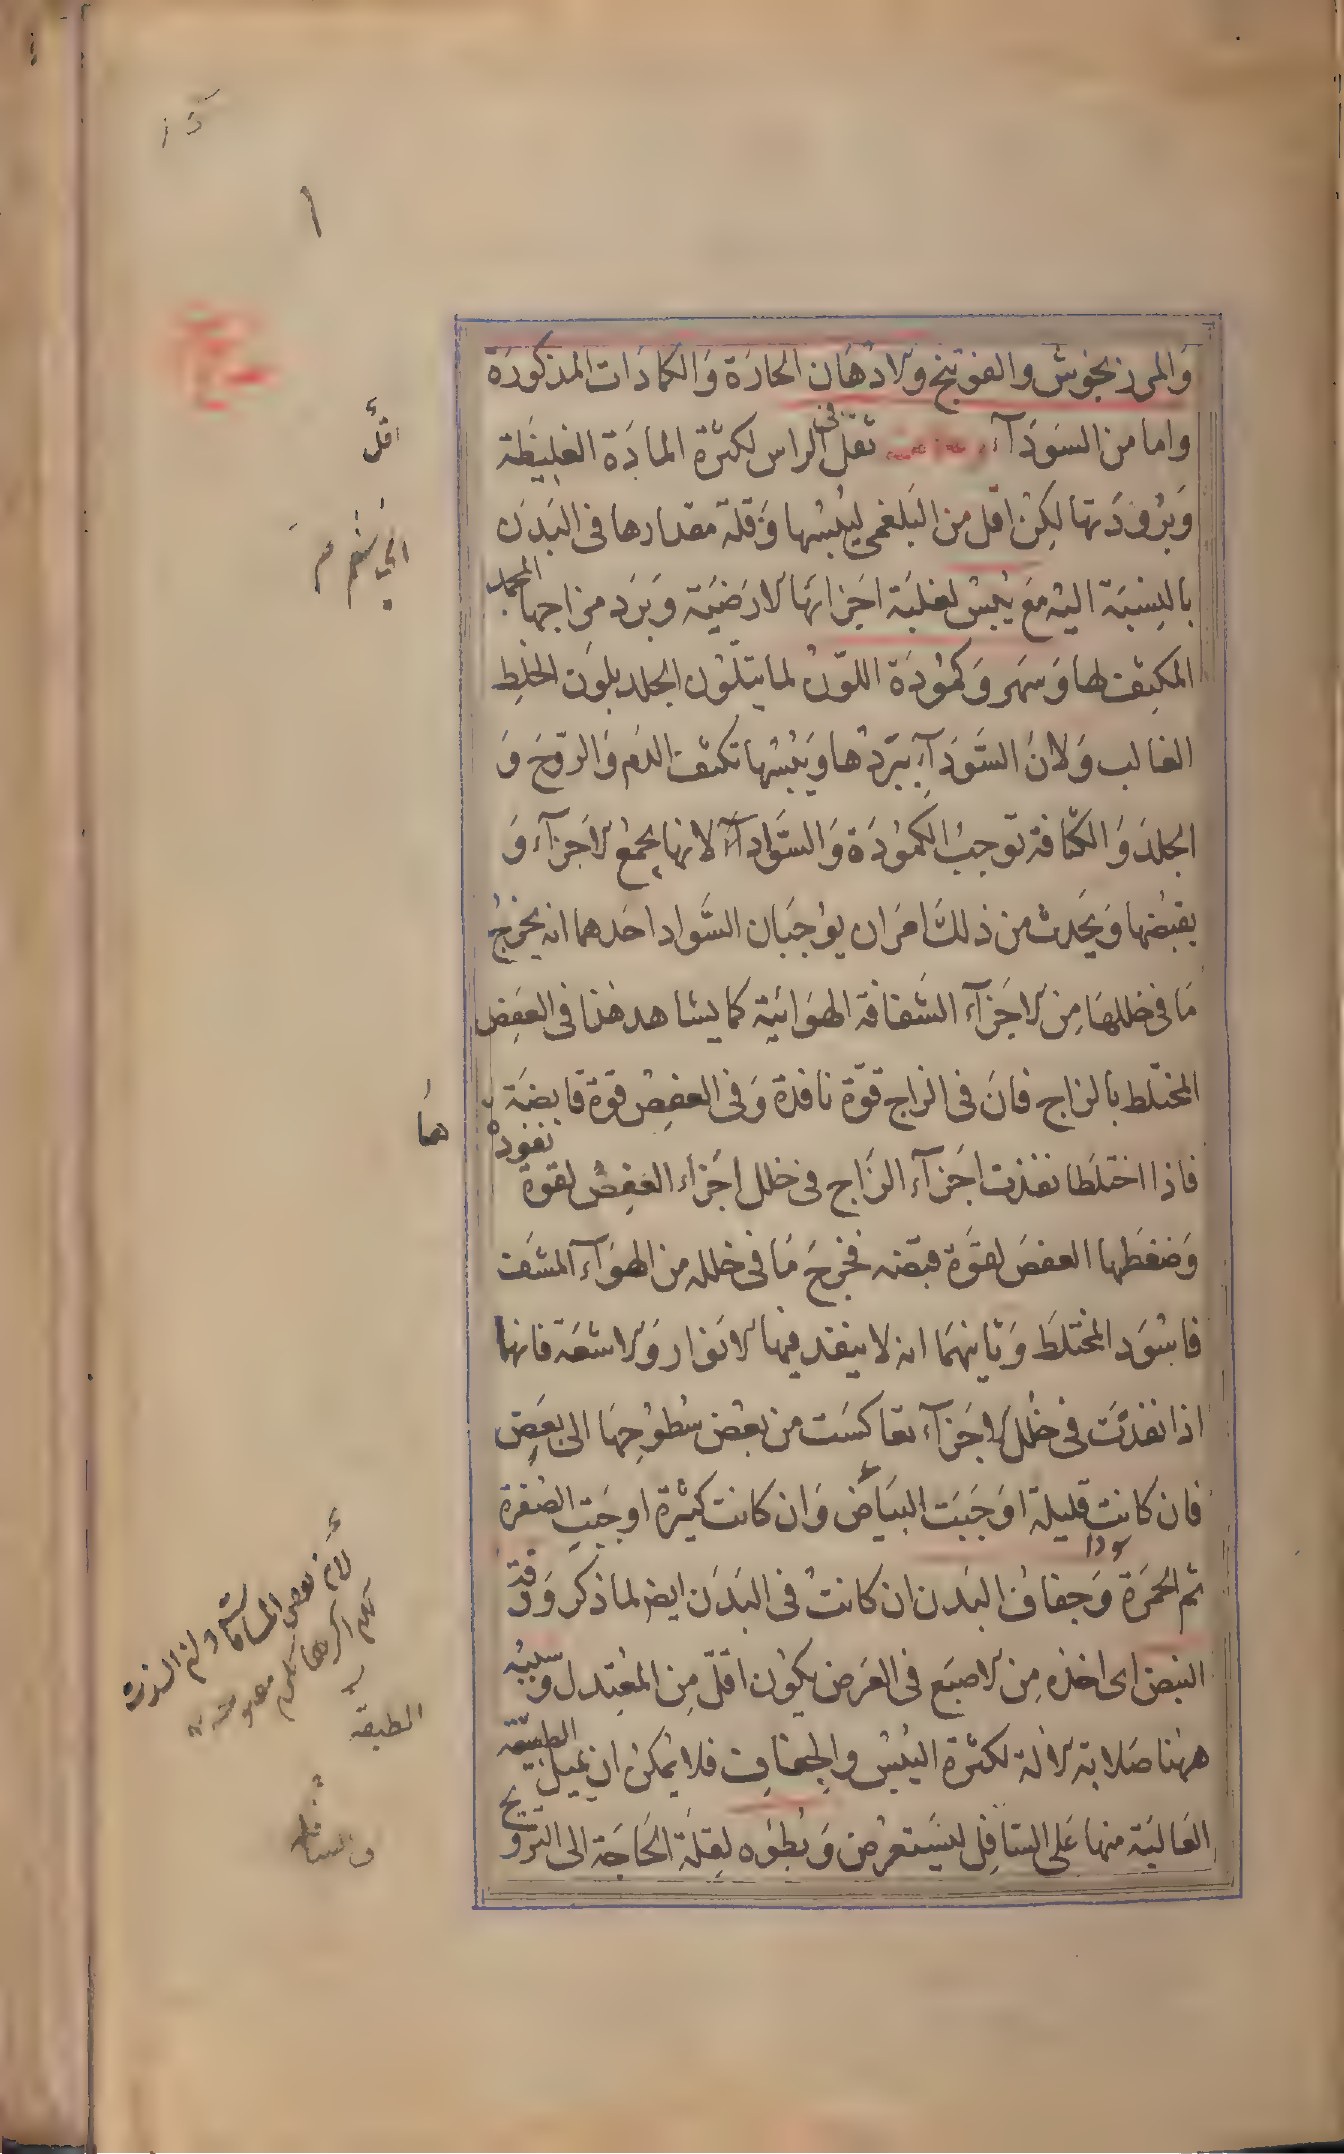 والمرزنجوش والفوتنج والادهان الحارة والكمادات المذكورة
واما من السودآء ثقل فى الراس لكثرة المادة الغليظة
وبرودتها لكن اقل من البلغمى ليبسها وقلة مقدارها فى البدن
بالنسبة اليه مع يبس لغلبة اجزائها الارضية وبرد مزاجها المجمد
المكثف لها وسهر وكمودة اللون لما يتلون الجلد بلون الخلط
الغالب ولان السودآء ببردها ويبسها تكثف الدم والروح و
الجلد والكثافة توجب الكمودة والسواد لانها يجمع الاجزآء و
يقبضها ويحدث من ذلك امران يوجبان السواد احدهما انه يخرج
ما فى خللها من الاجزآء الشفافة الهوائية كما يشاهد هذا فى العفص
المختلط بالزاج فان فى الزاج قوة نافذة وفى العفص قوة قابضة
فاذا اختلطا نفذت اجزآء الزاج فى خلل اجزاء العفص لقوة نفوذه
وضغطها العفص لقوة قبضه فخرج ما فى خلله من الهوآء المشف
فاسود المختلط وثانيهما انه لا ينفذ فيها الانوار والاشعة فانها
اذا نفذت فى خلل الاجزآء تعاكست من بعض سطوحها الى بعض
فان كانت قليلة اوجبت البياض وان كانت كثيرة اوجبت الصفرة
ثم الحمرة وجفاف البدن ان كانت فى البدن ايض لما ذكر ودقة
النبض اى اخذه من الاصبع فى العرض يكون اقل من المعتدل وسببه
ههنا صلابة الالة لكثرة اليبس والجفاف فلا يمكن ان يميل الطبقة
العالية منها على السافل ليستعرض وبطؤه لقلة الحاجة الى الترويح
اقل
هما
الطبقه